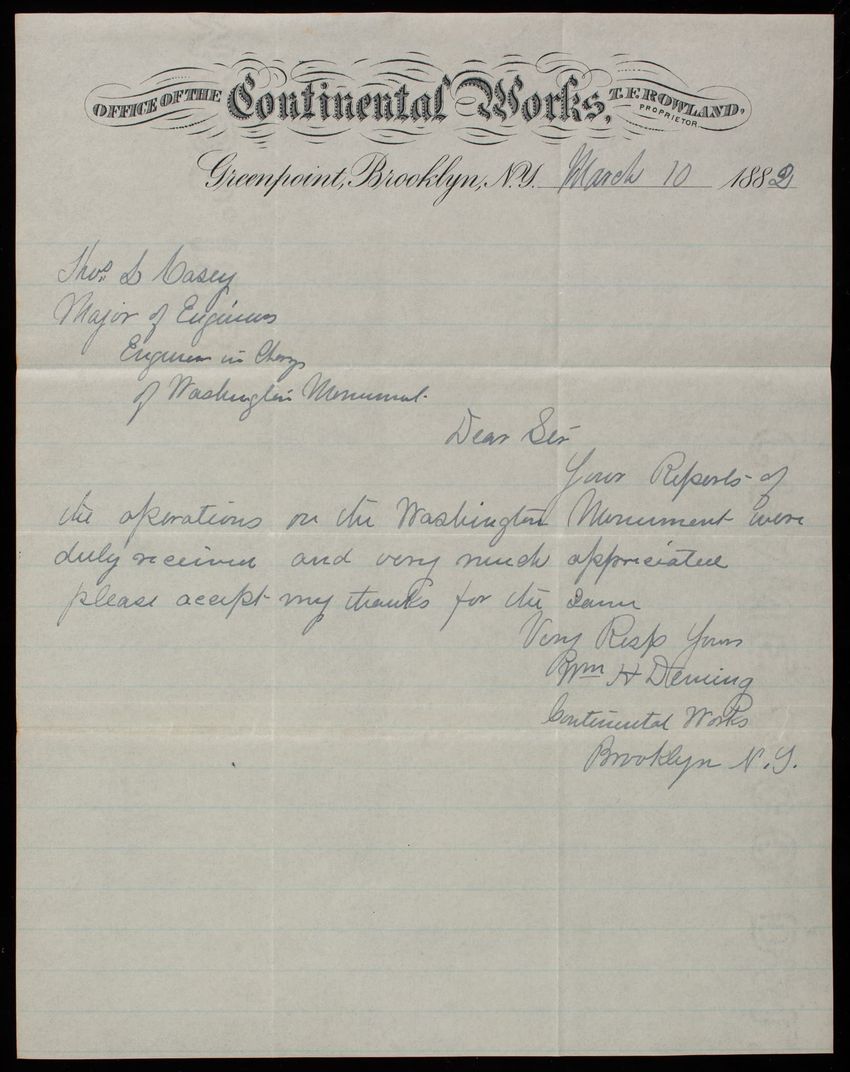 OFFICE OF THE Continental Works, T. F. ROWLAND, PROPRIETOR.
Greenpoint, Brooklyn, N.Y. March 10 1882
Thos. L Casey
Major of Engineers
Engineer in Charge
of Washington Monument
Dear Sir
Your Reports of
the operations on the Washington Monument were
duly received and very much appreciated
please accept my thanks for the same
Very Resp Yours
Wm H Deming
Continental Works
Brooklyn N.Y.